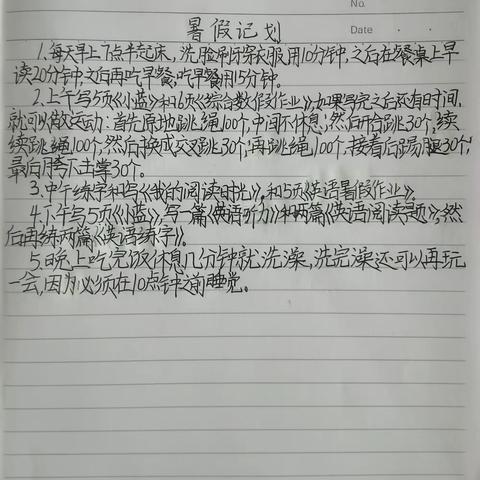 No.
Date
暑假记划
1.每天早上7点半起床,洗脸刷牙穿衣服用10分钟,之后在餐桌上早
读20分钟,之后再吃早餐,吃早餐用15分钟。
2.上午写5页《小蓝》和6页《综合数假作业》,如果写完之后还有时间,
就可以做运动:首先原地跳绳100个,中间不休息,然后开合跳30个,续
续跳绳100个,然后换成交叉跳30个,再跳绳100个,接着后踢腿30个,
最后胯下击掌30个。
3.中午练字和写《我的阅读时光》,和5页《英语暑假作业》。
4.下午写5页《小蓝》,写一篇《英语听力》和两篇《英语阅读题》,然
后再练两篇《英语练字》。
5.晚上吃完饭休息几分钟就洗澡,洗完澡还可以再玩
一会,因为必须在10点钟之前睡觉。